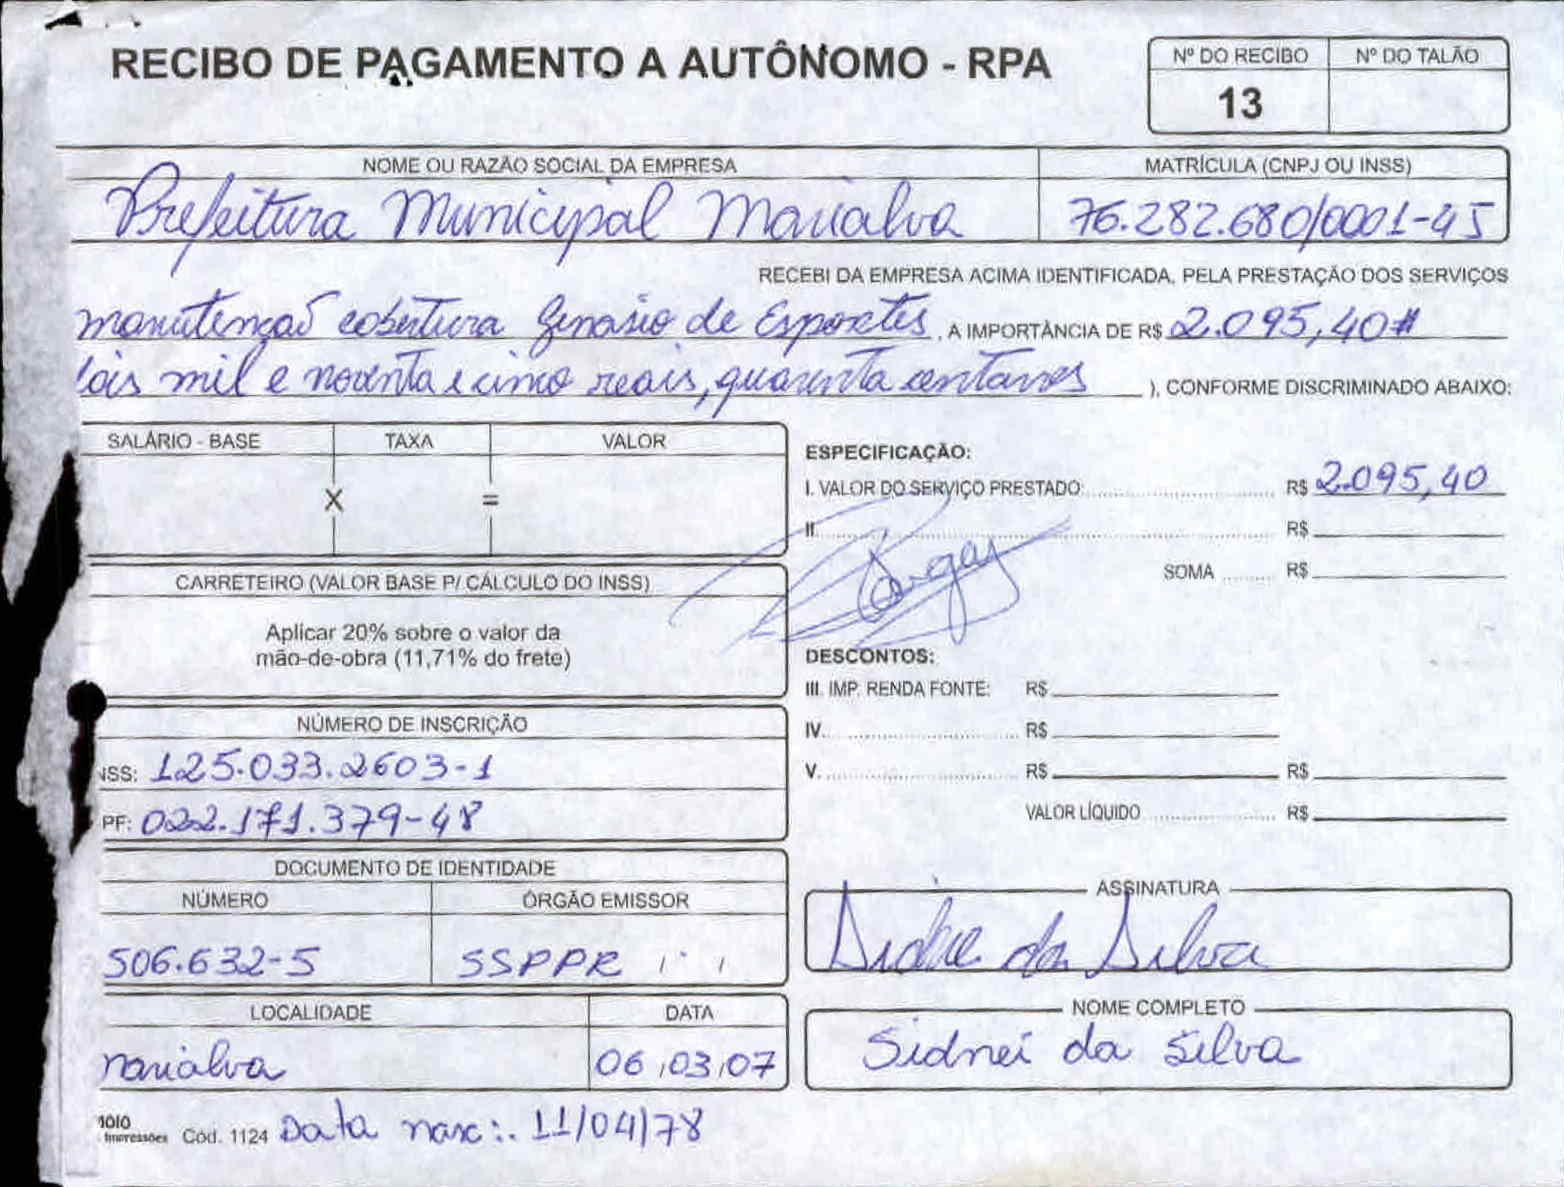 RECIBO DE PAGAMENTO A AUTÔNOMO - RPA
Nº DO RECIBO Nº DO TALÃO
13
NOME OU RAZÃO SOCIAL DA EMPRESA MATRÍCULA (CNPJ OU INSS)
Prefeitura Municipal Marialva 76.282.680/0001-45
RECEBI DA EMPRESA ACIMA IDENTIFICADA, PELA PRESTAÇÃO DOS SERVIÇOS
manutenção cobertura Ginasio de Esportes, A IMPORTÂNCIA DE R$ 2.095,40#
ois mil e noventa e cinco reais, quarenta centavos ), CONFORME DISCRIMINADO ABAIXO:
SALÁRIO - BASE TAXA VALOR
X =
CARRETEIRO (VALOR BASE P/ CÁLCULO DO INSS)
Aplicar 20% sobre o valor da
mão-de-obra (11,71% do frete)
NÚMERO DE INSCRIÇÃO
NSS: 125.033.2603-1
PF: 022.171.379-48
DOCUMENTO DE IDENTIDADE
NÚMERO ÓRGÃO EMISSOR
506.632-5 SSPPR
LOCALIDADE DATA
Marialva 06/03/07
ESPECIFICAÇÃO:
I. VALOR DO SERVIÇO PRESTADO R$ 2.095,40
II. R$
SOMA R$
DESCONTOS:
III. IMP. RENDA FONTE: R$
IV. R$
V. R$ R$
VALOR LÍQUIDO R$
ASSINATURA
Sidnei da Silva
NOME COMPLETO
Sidnei da Silva
Impressões Cód. 1124 Data nasc:. 11/04/78